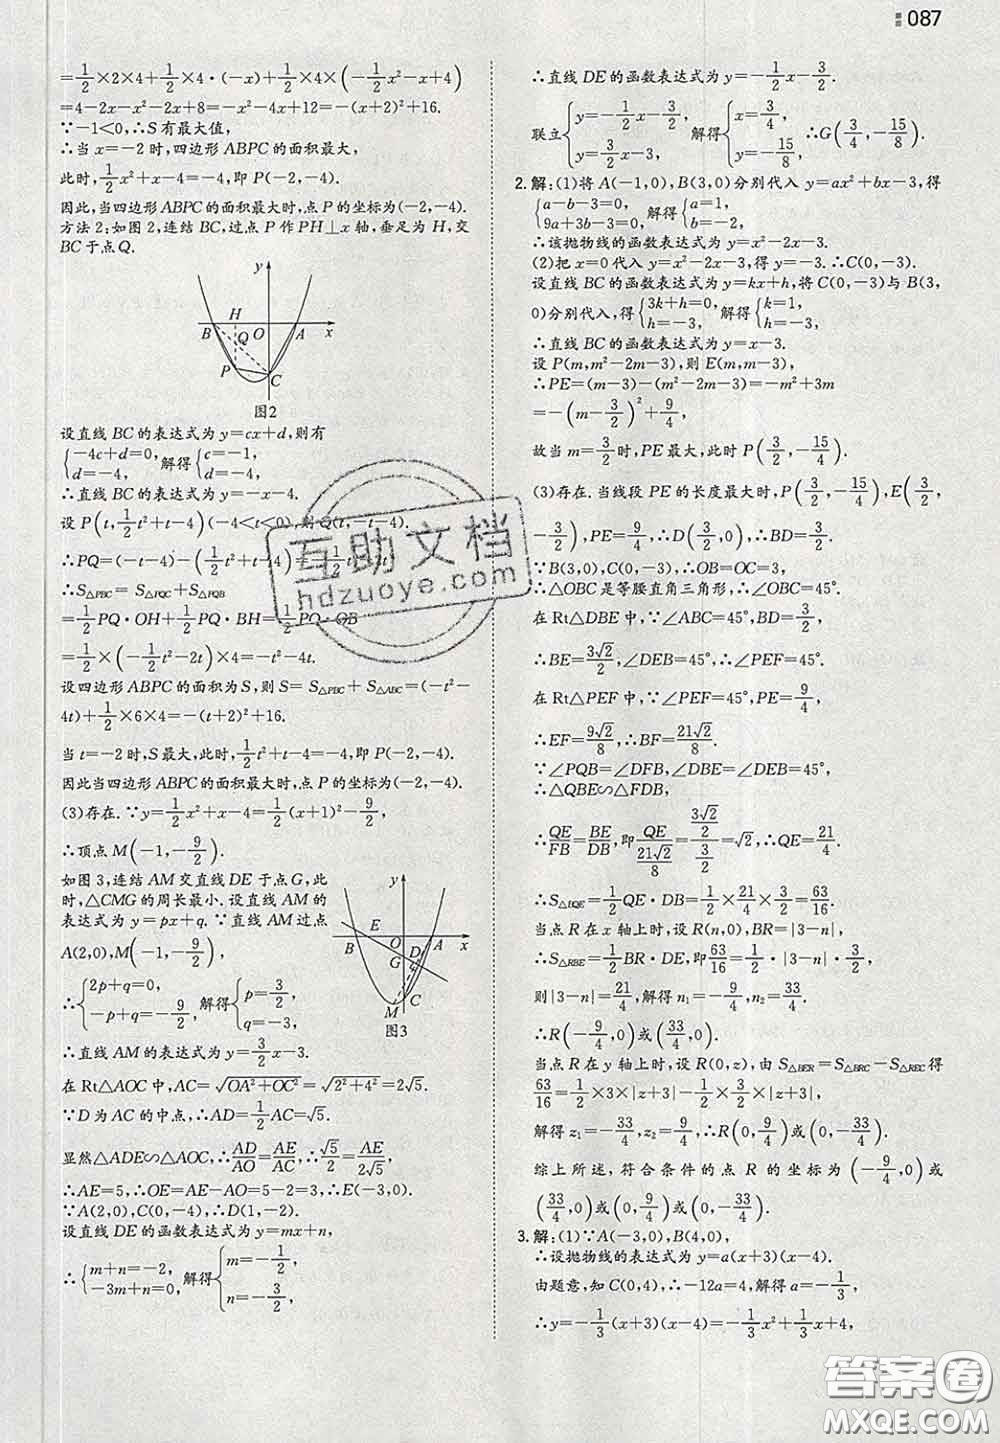 087
=1/2×2×4+1/2×4·(-x)+1/2×4×(-1/2x²-x+4)
=4-2x-x²-2x+8=-x²-4x+12=-(x+2)²+16.
∵-1<0,∴S有最大值,
∴当x=-2时,四边形ABPC的面积最大,
此时,1/2x²+x-4=-4,即P(-2,-4).
因此,当四边形ABPC的面积最大时,点P的坐标为(-2,-4).
方法2:如图2,连结BC,过点P作PH⊥x轴,垂足为H,交
BC于点Q.
y
H
B Q O A x
P C
图2
设直线BC的表达式为y=cx+d,则有
{-4c+d=0, d=-4, 解得{c=-1, d=-4.
∴直线BC的表达式为y=-x-4.
设P(t,1/2t²+t-4)(-4<t<0),则Q(t,-t-4).
∴PQ=(-t-4)-(1/2t²+t-4)=-1/2t²-2t.
∴S△PBC=S△PQC+S△PQB
=1/2PQ·OH+1/2PQ·BH=1/2PQ·OB
=1/2×(-1/2t²-2t)×4=-t²-4t.
设四边形ABPC的面积为S,则S=S△PBC+S△ABC=(-t²-
4t)+1/2×6×4=-(t+2)²+16.
当t=-2时,S最大,此时,1/2t²+t-4=-4,即P(-2,-4).
因此当四边形ABPC的面积最大时,点P的坐标为(-2,-4).
(3)存在.∵y=1/2x²+x-4=1/2(x+1)²-9/2,
∴顶点M(-1,-9/2).
如图3,连结AM交直线DE于点G,此
时,△CMG的周长最小.设直线AM的
表达式为y=px+q.∵直线AM过点
A(2,0),M(-1,-9/2),
∴{2p+q=0, -p+q=-9/2, 解得{p=3/2, q=-3,
y
E
B O D A x
G
M C
图3
∴直线AM的表达式为y=3/2x-3.
在Rt△AOC中,AC=√(OA²+OC²)=√(2²+4²)=2√5.
∵D为AC的中点,∴AD=1/2AC=√5.
显然△ADE∽△AOC,∴AD/AO=AE/AC,∴√5/2=AE/2√5.
∴AE=5,∴OE=AE-AO=5-2=3,∴E(-3,0).
∵A(2,0),C(0,-4),∴D(1,-2).
设直线DE的函数表达式为y=mx+n,
∴{m+n=-2, -3m+n=0, 解得{m=-1/2, n=-3/2,
∴直线DE的函数表达式为y=-1/2x-3/2.
联立{y=-1/2x-3/2, y=3/2x-3, 解得{x=3/4, y=-15/8, ∴G(3/4,-15/8).
2.解:(1)将A(-1,0),B(3,0)分别代入y=ax²+bx-3,得
{a-b-3=0, 9a+3b-3=0, 解得{a=1, b=-2,
∴该抛物线的函数表达式为y=x²-2x-3.
(2)把x=0代入y=x²-2x-3,得y=-3.∴C(0,-3).
设直线BC的函数表达式为y=kx+h,将C(0,-3)与B(3,
0)分别代入,得{3k+h=0, h=-3, 解得{k=1, h=-3.
∴直线BC的函数表达式为y=x-3.
设P(m,m²-2m-3),则E(m,m-3)
∴PE=(m-3)-(m²-2m-3)=-m²+3m
=-(m-3/2)²+9/4,
故当m=3/2时,PE最大,此时P(3/2,-15/4).
(3)存在.当线段PE的长度最大时,P(3/2,-15/4),E(3/2,
-3/2),PE=9/4,∴D(3/2,0),BD=3/2.
∵B(3,0),C(0,-3),∴OB=OC=3,
∴△OBC是等腰直角三角形,∴∠ABC=45°,
在Rt△DBE中,∵∠ABC=45°,BD=3/2,
∴BE=3√2/2,∠DEB=45°,∴∠PEF=45°.
在Rt△PEF中,∵∠PEF=45°,PE=9/4,
∴EF=9√2/8,∴BF=21√2/8.
∵∠PQB=∠DFB,∠DBE=∠DEB=45°
∴△QBE∽△FDB,
∴QE/FB=BE/DB,即QE/(21√2/8)=(3√2/2)/(3/2)=√2,∴QE=21/4.
∴S△BQE=1/2QE·DB=1/2×21/4×3/2=63/16.
当点R在x轴上时,设R(n,0),BR=|3-n|,
∴S△RBE=1/2BR·DE,即63/16=1/2·|3-n|·3/2,
则|3-n|=21/4,解得n₁=-9/4,n₂=33/4.
∴R(-9/4,0)或(33/4,0).
当点R在y轴上时,设R(0,z),由S△BER=S△BRC-S△REC得
63/16=1/2×3×|z+3|-1/2×3/2×|z+3|,
解得z₁=-33/4,z₂=9/4,∴R(0,9/4)或(0,-33/4).
综上所述,符合条件的点R的坐标为(-9/4,0)或
(33/4,0)或(0,9/4)或(0,-33/4).
3.解:(1)∵A(-3,0),B(4,0),
∴设抛物线的表达式为y=a(x+3)(x-4).
由题意,知C(0,4),∴-12a=4,解得a=-1/3,
∴y=-1/3(x+3)(x-4)=-1/3x²+1/3x+4,
互助文档
hdzuoye.com
答案圈
MXQE.COM